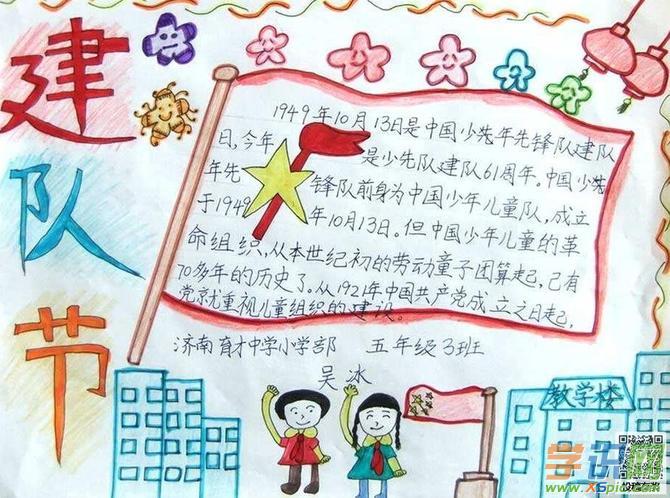 建队节
1949年10月13日是中国少先年先锋队建队
日,今年是少先队建队61周年。中国少先
年先锋队前身为中国少年儿童队,成立
于1949年10月13日。但中国少年儿童的革
命组织,从本世纪初的劳动童子团算起,已有
70多年的历史了。从1921年中国共产党成立之日起,
党就重视儿童组织的建设。
济南育才中学小学部 五年级3班
吴冰
教学楼
学识网
www.xspic.com